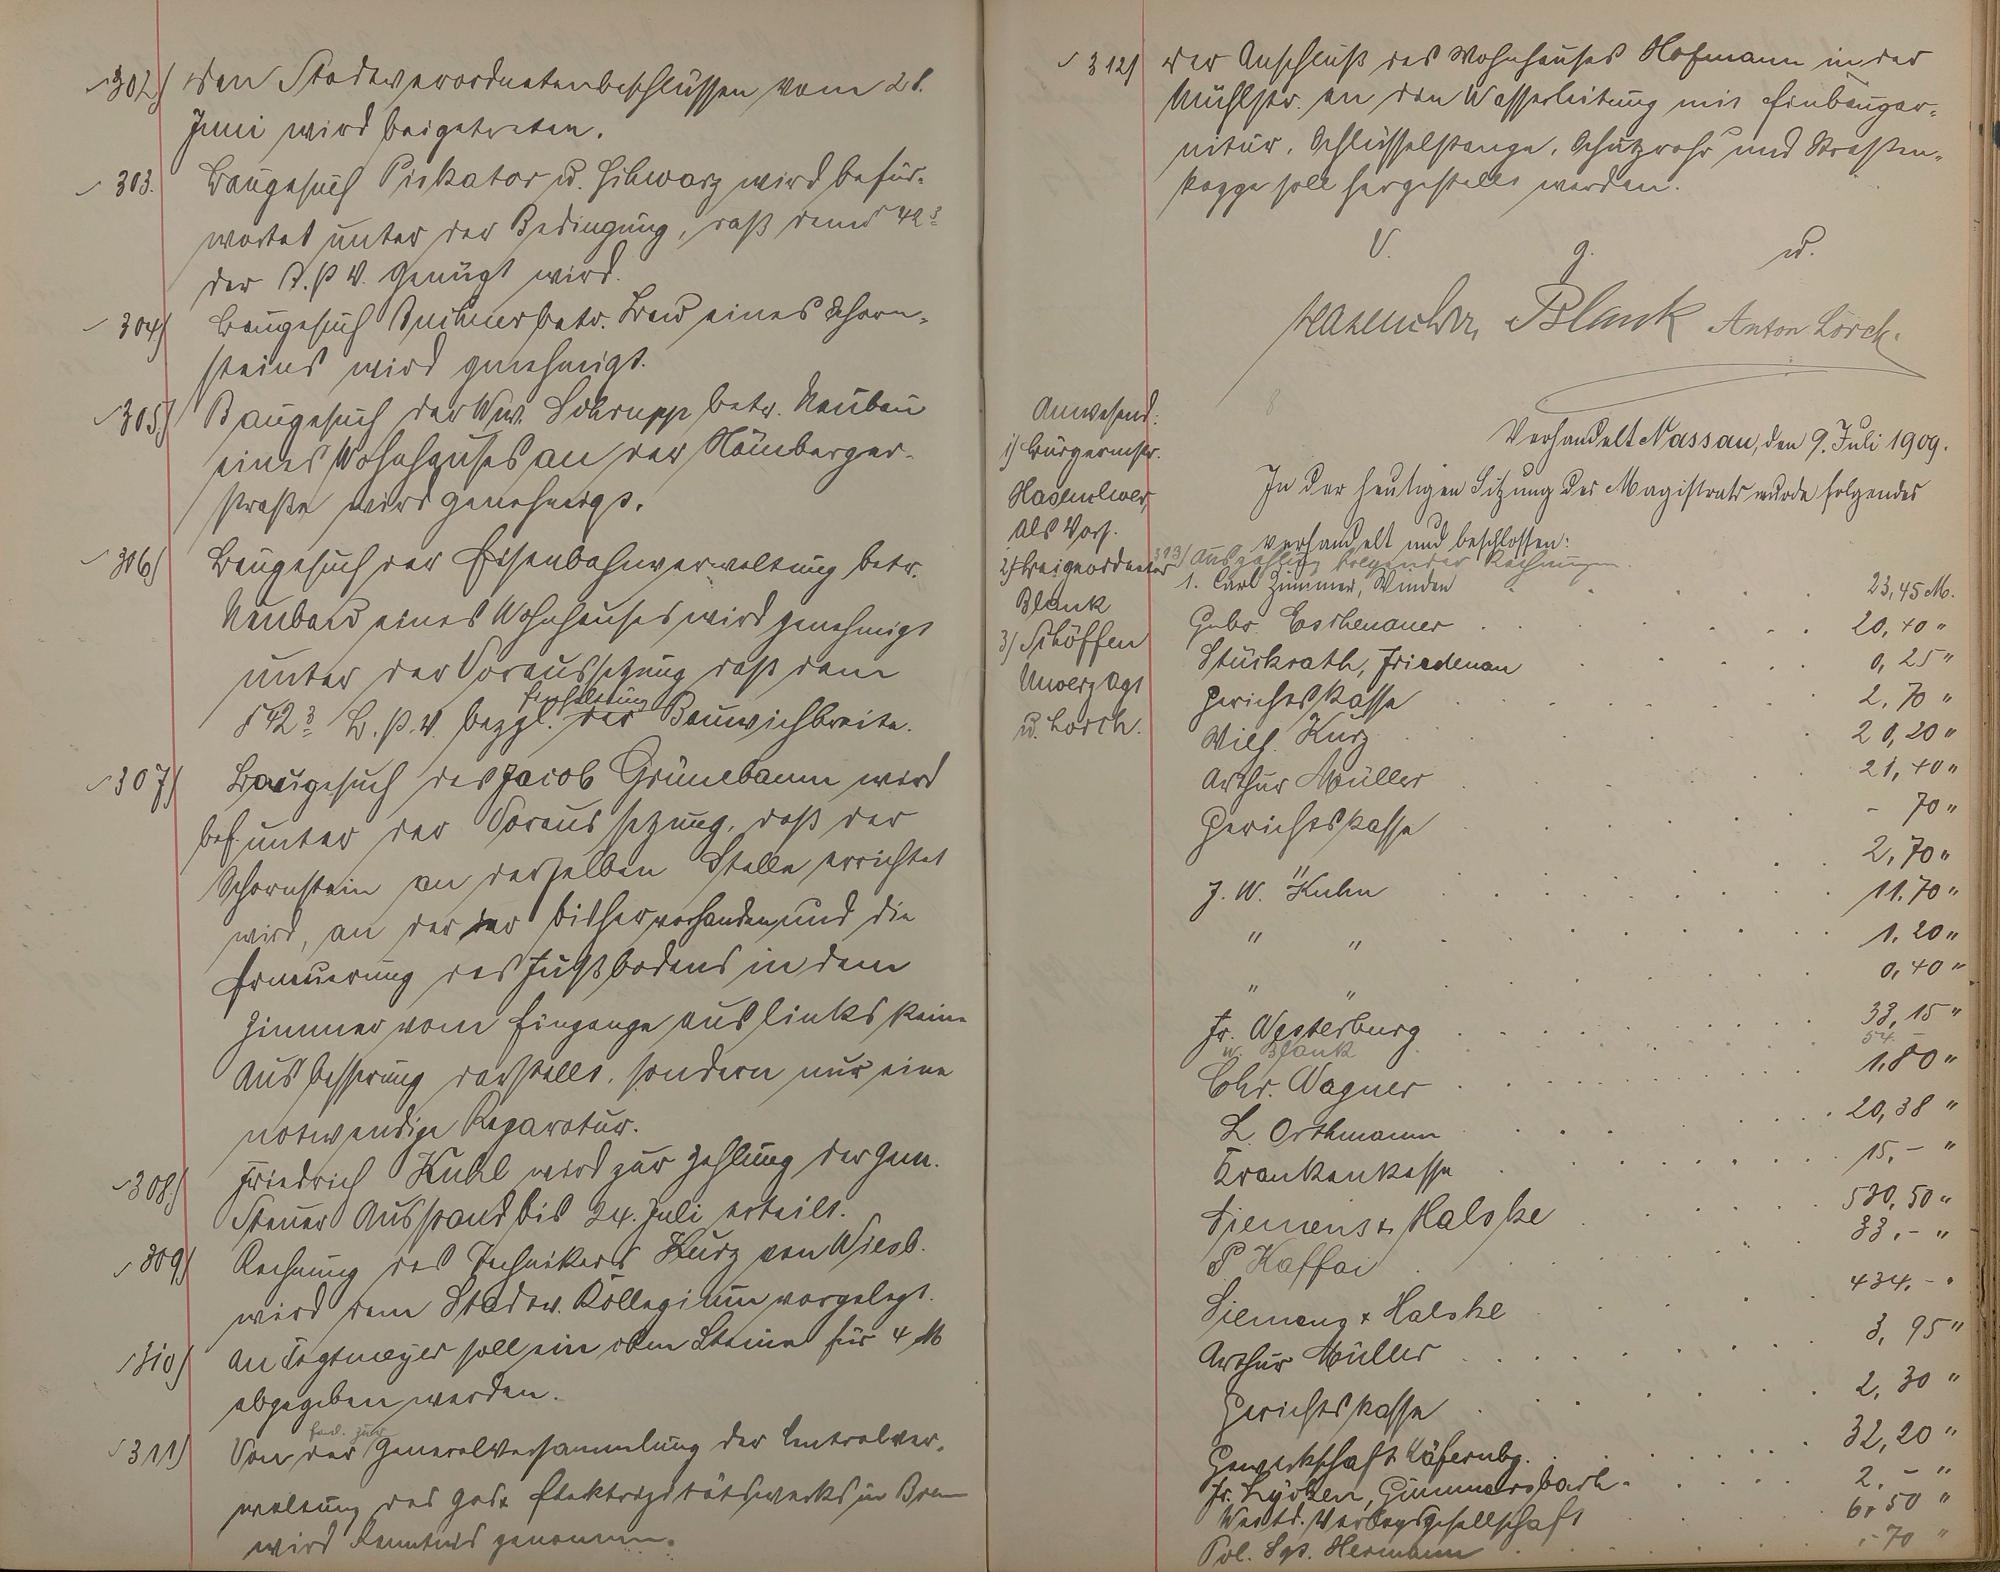 302) den Stadtverordnetenbeschlüssen vom 28.
Juni wird beigetreten.
303. Baugesuch Piskator u. Schwarz wird befür-
wortet unter der Bedingung, daß dem § 42³
der B.P.V. genügt wird.
304) Baugesuch Buchner betr. Bau eines Schorn-
steins wird genehmigt.
305.) Baugesuch der Ww. Schrupp betr. Neubau
eines Wohnhauses an der Hömberger-
straße wird genehmigt.
306) Baugesuch der Eisenbahnverwaltung betr.
Neubau eines Wohnhauses wird genehmigt
unter der Voraussetzung daß dem
Einhaltung
§ 42³ B.P.V. bezgl. der Bauwichbreite.
307) Baugesuch des Jacob Grünebaum wird
bef. unter der Voraussetzung, daß der
Schornstein an derselben Stelle errichtet
wird, an der der bisher vorhanden und die
Erneuerung des Fußbodens in dem
Zimmer vom Eingange aus links keine
Ausbesserung darstellt, sondern nur eine
notwendige Reparatur.
308.) Friedrich Kuhl wird zur Zahlung der Gem.
Steuer Ausstand bis 24. Juli erteilt.
309) Rechnung des Technikers Kurz von Wiesb.
wird dem Stadtv. Kollegium vorgelegt.
310) An Tegtmeyer soll ein cbm Steine für 4 M
abgegeben werden.
311) Von der Generalversammlung der Centralver-
waltung des Gas & Elektrizitätswerks in Brem
wird Kenntnis genommen.
312) Der Anschluß des Wohnhauses Hofmann in der
Mühlstr. an den Wasserleitung mit Einbaugar-
nitur, Schlüsselstange, Schutzrohr und Straßen-
kappe soll hergestellt werden.
V. g. u.
Hasenclever Blank Anton Lorch.
Anwesend:
1) Bürgermstr.
Hasenclever,
als Vors.
2) Beigeordneter
Blank
3) Schöffen
Unverzagt
u. Lorch.
Verhandelt Nassau, den 9. Juli 1909.
In der heutigen Sitzung des Magistrats wurde folgendes
verhandelt und beschlossen:
313) Auszahlung folgender Rechnungen
1. Carl Zimmer, Winden 23,45 M.
Gebr. Eschenauer 20,40 "
Stückrath, Friedenau 0,25 "
Gerichtskasse 2,70 "
Wilh. Kurz 20,20 "
Arthur Müller 21,40 "
Gerichtskasse - 70 "
" 2,70 "
J. W. Kuhn 11.70 "
" " 1.20 "
" " 0,40 "
Fr. Westerburg 33,15 "
u. Blank 54.
Chr. Wagner 1.80 "
L. Orthmann 20,38 "
Krankenkasse 15,- "
Siemens & Halske 530,50 "
P Kaffai 33,- "
Siemens & Halske 434,- "
Arthur Müller 3,95 "
Gerichtskasse 2,30 "
Gewerkschaft Käfernbg. 32,20 "
Fr. Luyken, Gummersbach 2,- "
Westd. Verlagsgesellschaft 6,50 "
Pol. Sgt. Hermann -70 "